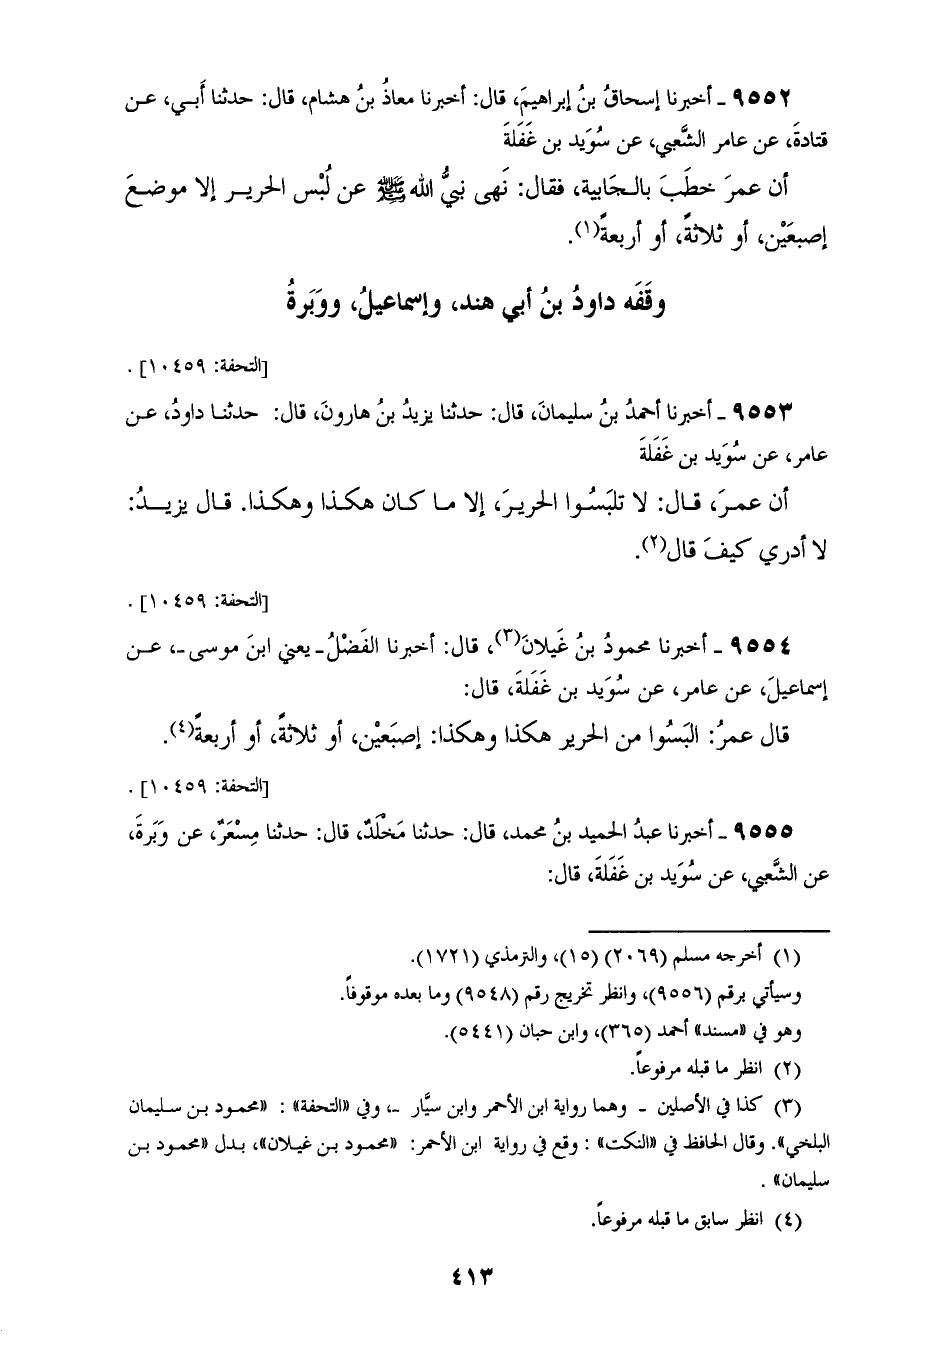 ٩٥٥٢ ـ أخبرنا إسحاقُ بنُ إبراهيمَ، قال: أخبرنا معاذُ بنُ هشام، قال: حدثنا أَبي، عـن
قتادةَ، عن عامر الشَّعبي، عن سُوَيد بن غَفَلةَ
أن عمرَ خطَبَ بالـجَابية، فقال: نَهى نبيُّ الله ﷺ عن لُبْس الحريـر إلا موضعَ
إصبعَيْن، أو ثلاثةً، أو أربعةً(١).
وقَفَه داودُ بنُ أبي هند، وإسماعيلُ، ووَبَرةُ
[التحفة: ١٠٤٥٩] .
٩٥٥٣ ـ أخبرنا أحمدُ بنُ سليمانَ، قال: حدثنا يزيدُ بنُ هارونَ، قال: حدثنـا داودُ، عـن
عامر، عن سُوَيد بن غَفَلةَ
أن عمـرَ، قـال: لا تلبَسُـوا الحريـرَ، إلا مـا كـان هكـذا وهكـذا. قـال يزيـدُ:
لا أدري كيفَ قال(٢).
[التحفة: ١٠٤٥٩] .
٩٥٥٤ ـ أخبرنا محمودُ بنُ غَيلانَ(٣)، قال: أخبرنا الفَضْلُ ـ يعني ابنَ موسى ـ، عـن
إسماعيلَ، عن عامر، عن سُوَيد بن غَفَلةَ، قال:
قال عمرُ: البَسُوا من الحرير هكذا وهكذا: إصبَعَيْن، أو ثلاثةً، أو أربعةً(٤).
[التحفة: ١٠٤٥٩] .
٩٥٥٥ ـ أخبرنا عبدُ الحميد بنُ محمد، قال: حدثنا مَخْلَدٌ، قال: حدثنا مِسْعَرٌ، عن وَبَرةَ،
عن الشَّعبي، عن سُوَيد بن غَفَلةَ، قال:
(١) أخرجه مسلم (٢٠٦٩) (١٥)، والترمذي (١٧٢١).
وسيأتي برقم (٩٥٥٦)، وانظر تخريج رقم (٩٥٤٨) وما بعده موقوفاً.
وهو في «مسند» أحمد (٣٦٥)، وابن حبان (٥٤٤١).
(٢) انظر ما قبله مرفوعاً.
(٣) كذا في الأصلين ـ وهما رواية ابن الأحمر وابن سيَّار ـ، وفي «التحفة» : «محمود بـن سـليمان
البلخي». وقال الحافظ في «النكت» : وقع في رواية ابن الأحمر: «محمـود بـن غيـلان»، بـدل «محمـود بـن
سليمان» .
(٤) انظر سابق ما قبله مرفوعاً.
٤١٣